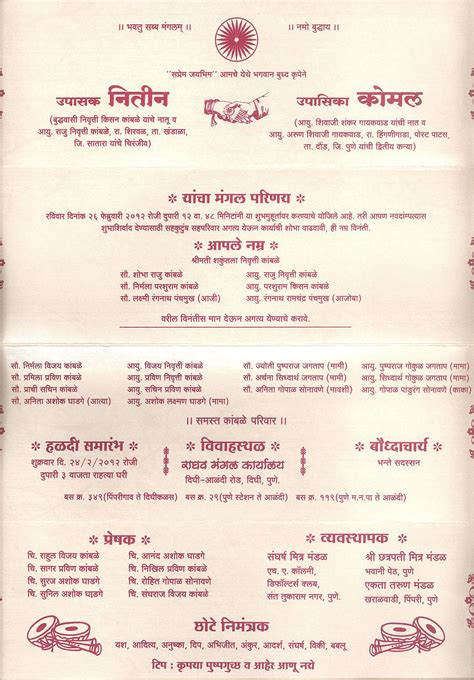 ।। भवतु सब्ब मंगलम् ।।
।। नमो बुद्धाय ।।
"सप्रेम जयभिम" आमचे येथे भगवान बुध्द कृपेने
उपासक नितीन
(बुद्धवासी निवृत्ती किसन कांबळे यांचे नातू व
आयु. राजु निवृत्ती कांबळे, रा. शिरवळ, ता. खंडाळा,
जि. सातारा यांचे चिरंजीव)
उपासिका कोमल
(आयु. शिवाजी शंकर गायकवाड यांची नात व
आयु. अरुण शिवाजी गायकवाड, रा. हिंगणीगाडा, पोस्ट पाटस,
ता. दौंड, जि. पुणे यांची द्वितीय कन्या)
यांचा मंगल परिणय
रविवार दिनांक २६ फेब्रुवारी २०१२ रोजी दुपारी १२ वा. ४८ मिनिटांनी या शुभमुहूर्तावर करण्याचे योजिले आहे. तरी आपण नवदांम्पत्यास
शुभाशिर्वाद देण्यासाठी सहकुटुंब सहपरिवार अगत्य येऊन कार्याची शोभा वाढवावी, ही नम्र विनंती.
आपले नम्र
श्रीमती शकुंतला निवृत्ती कांबळे
सौ. शोभा राजु कांबळे आयु. राजु निवृत्ती कांबळे
सौ. निर्मला परशुराम कांबळे आयु. परशुराम किसन कांबळे
सौ. लक्ष्मी रंगनाथ पंचमुख (आजी) रंगनाथ रामचंद्र पंचमुख (आजोबा)
वरील विनंतीस मान देऊन अगत्य येण्याचे करावे.
सौ. निर्मला विजय कांबळे आयु. विजय निवृत्ती कांबळे सौ. ज्योती पुष्पराज जगताप (मामी) आयु. पुष्पराज गोकुळ जगताप (मामा)
सौ. प्रमिला प्रविण कांबळे आयु. प्रविण निवृत्ती कांबळे सौ. अर्चना सिध्दार्थ जगताप (मामी) आयु. सिध्दार्थ गोकुळ जगताप (मामा)
सौ. प्राची सचिन कांबळे आयु. सचिन निवृत्ती कांबळे सौ. अनिता गोपाळ सोनावणे (मावशी) आयु. गोपाळ पांडुरंग सोनावणे (काका)
सौ. अनिता अशोक घाडगे (आत्या) आयु. अशोक लक्ष्मण घाडगे (मामा)
।। समस्त कांबळे परिवार ।।
हळदी समारंभ
शुक्रवार दि. २४/२/२०१२ रोजी
दुपारी ३ वाजता राहत्या घरी
विवाहस्थळ
राघव मंगल कार्यालय
दिघी-आळंदी रोड, दिघी, पुणे.
बौध्दाचार्य
भन्ते सदरसन
बस क्र. ३४९(पिंपरीगाव ते दिघीकळस) बस क्र. २९(पुणे स्टेशन ते आळंदी) बस क्र. ११९(पुणे म.न.पा ते आळंदी)
प्रेषक
चि. राहुल विजय कांबळे चि. आनंद अशोक घाडगे
चि. सागर प्रविण कांबळे चि. निखिल प्रविण कांबळे
चि. सुरज अशोक घाडगे चि. रोहित गोपाळ सोनावणे
चि. सुनिल अशोक घाडगे चि. संघराज विजय कांबळे
व्यवस्थापक
संघर्ष मित्र मंडळ श्री छत्रपती मित्र मंडळ
एच. ए. कॉलनी, भवानी पेठ, पुणे.
डिफॉल्टर्स क्लब, एकता तरुण मंडळ
संत तुकाराम नगर, पुणे. खराळवाडी, पिंपरी, पुणे.
छोटे निमंत्रक
यश, आदित्य, अनुष्का, दिप, अभिजीत, अंकुर, आदर्श, संघर्ष, विकी, बबलू
टिप : कृपया पुष्पगुच्छ व आहेर आणू नये